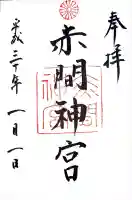 奉拝
赤間神宮
平成三十年一月一日